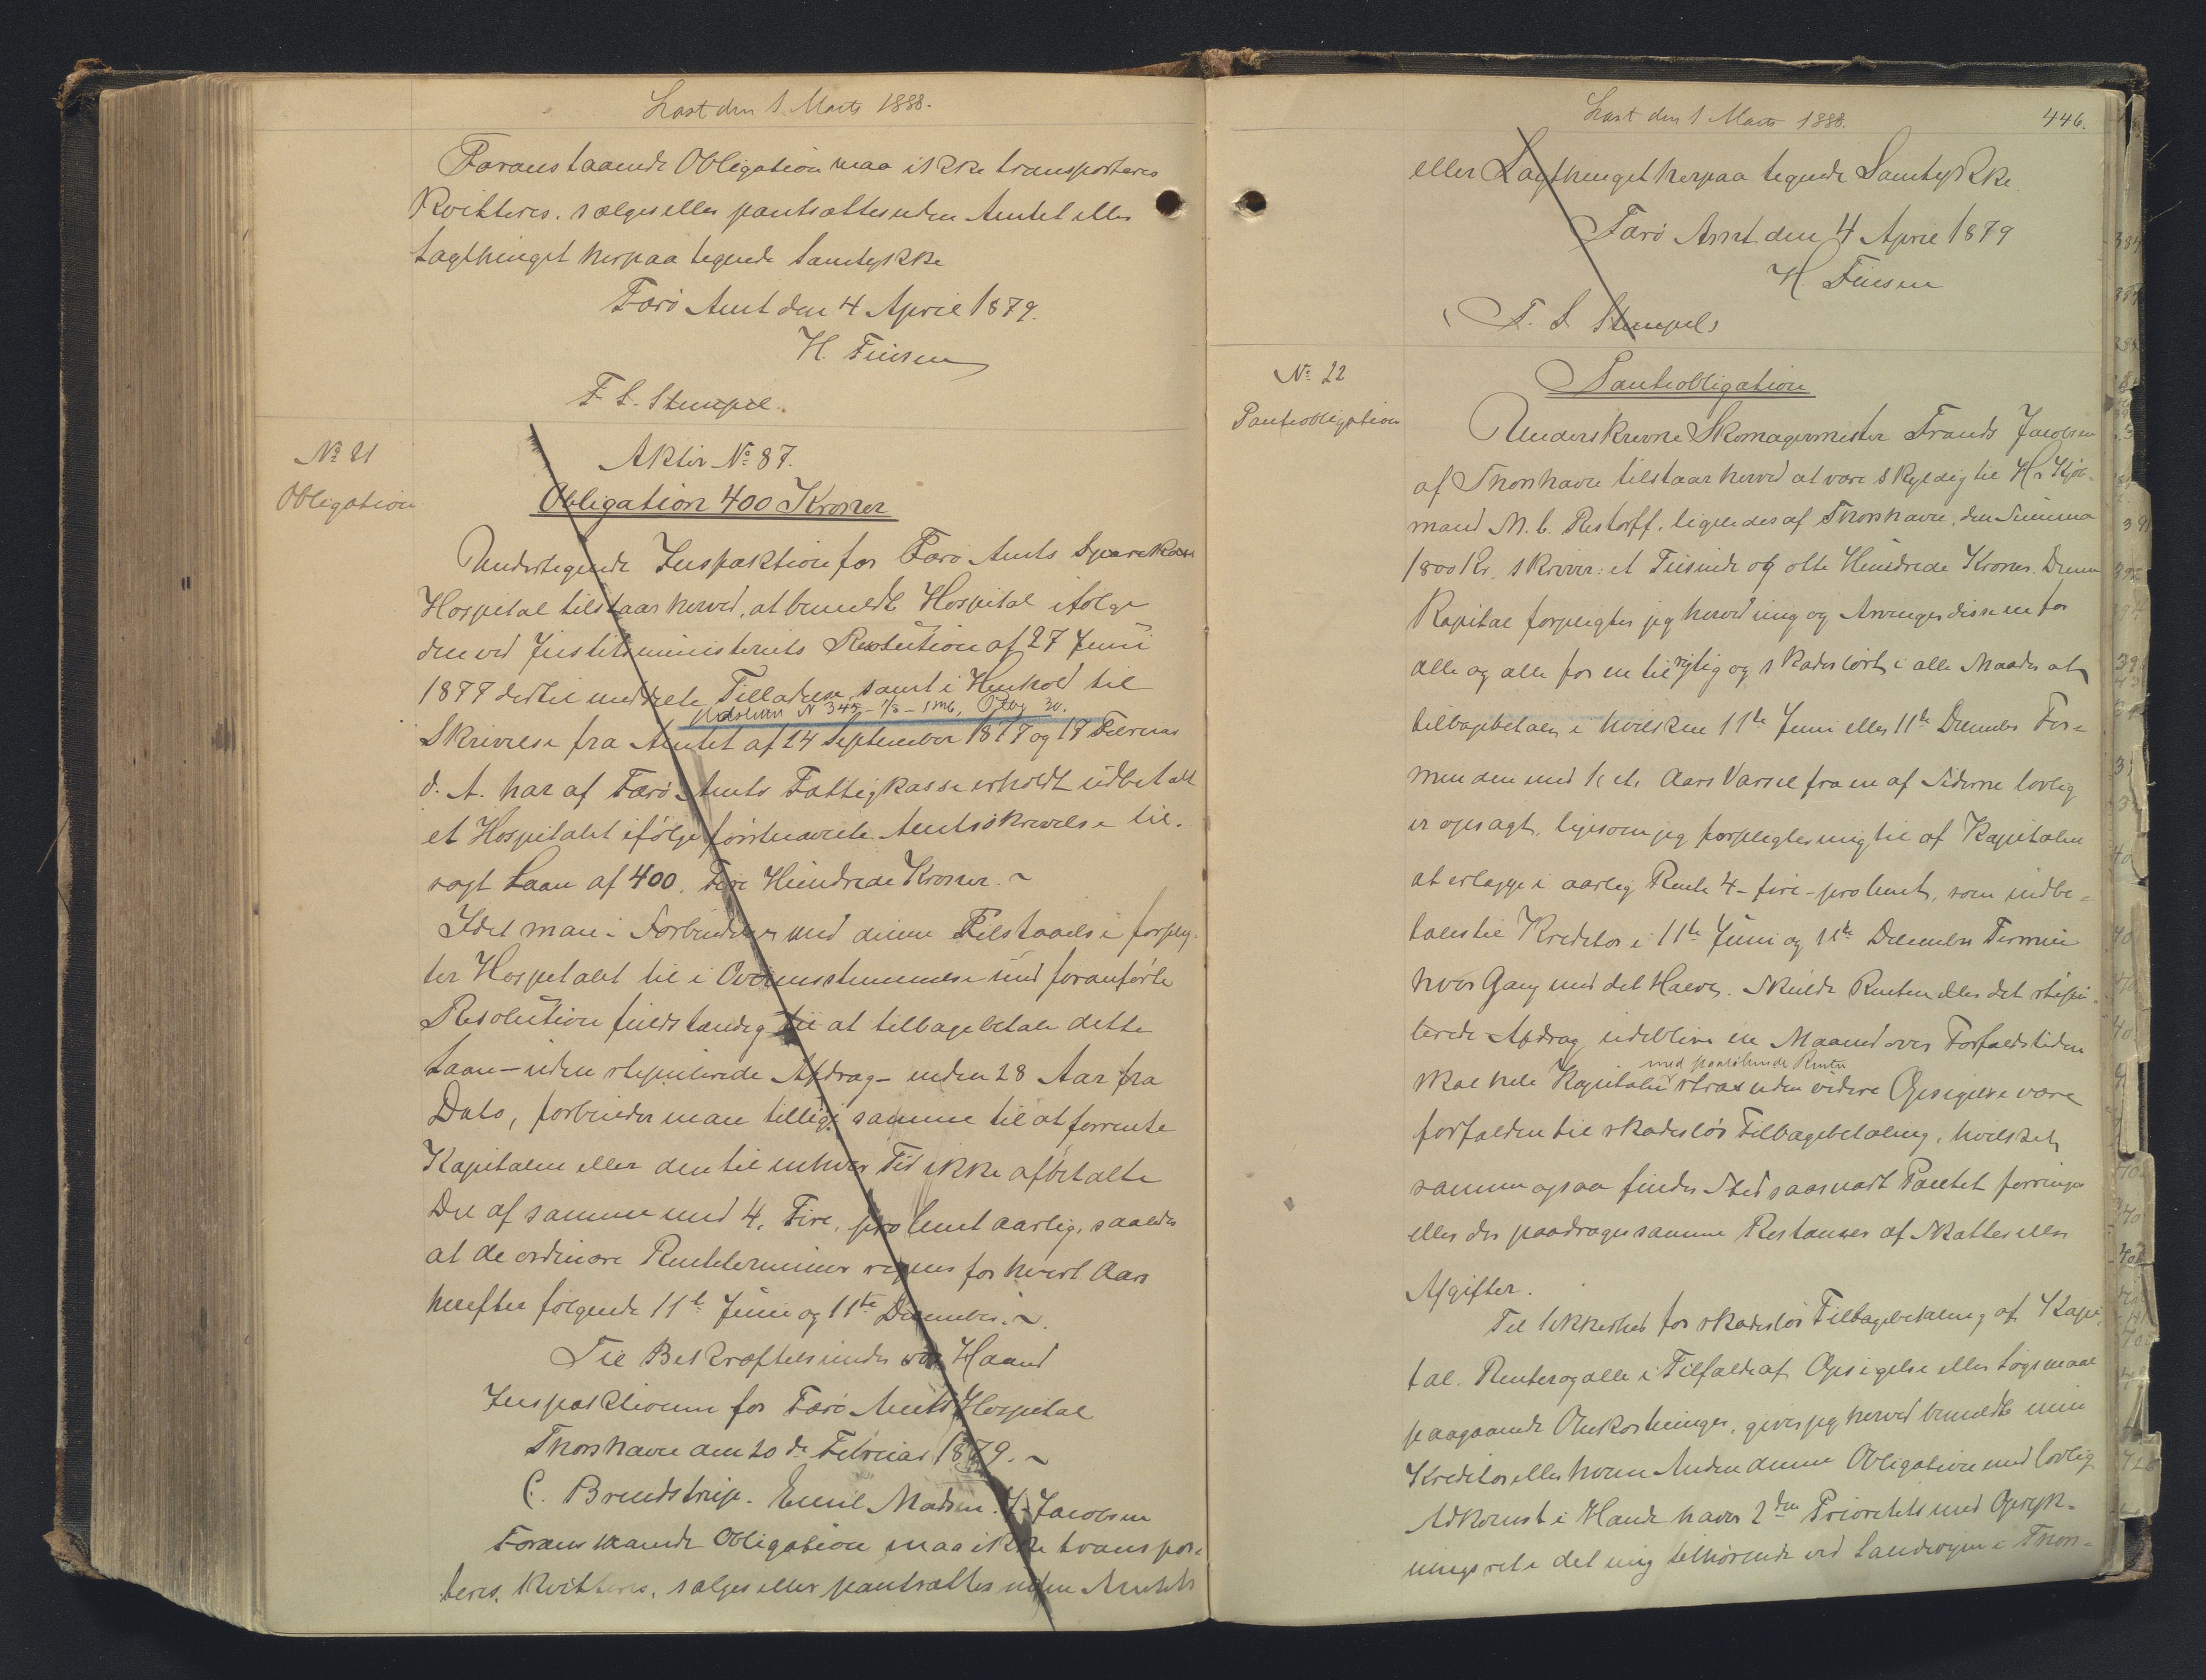 Læst den 1 Marts 1888.
Foranstaaende Obligation maa ikke transporteres
kvitteres, sælges eller pantsættes uden Amtet eller
Lagthinget herpaa tegnede Samtykke
Færø Amt den 4 April 1879.
H. Finsen
F. S. Stempel.
No 21
Obligation
Aktiv No 87.
Obligation 400 Kroner
Undertegnede Inspektion for Færø Amts
Hospital tilstaar herved, at bemeldte Hospital ifølge
den ved Justitsministeriets Resolution af 27 Juni
1877 dertil meddelte Tilladelse, samt i Henhold til
Skrivelse fra Amtet af 24 September 1877 og 17 Februar
d. A. har af Færø Amts Fattigkasse erholdt udbetalt
et Hospitalet ifølge førstnævnte Amtsskrivelse til-
sagt Laan af 400, Fire Hundrede Kroner. ~
Idet man i Forbindelse med denne Tilstaaelse forplig-
ter Hospitalet til i Overensstemmelse med foranførte
Resolution fuldstændig til at tilbagebetale dette
Laan – uden stipulerede Afdrag – inden 28 Aar fra
Dato, forbinder man tillige samme til at forrente
Kapitalen eller den til enhver Tid ikke afbetalte
Del af samme med 4, Fire, pro Cent aarlig, saaledes
at de ordinære Renteterminer regnes for hvert Aars
herefter følgende 11te Juni og 11te December. ~
Til Bekræftelse under vor Haand
Inspektionen for Færø Amts Hospital
Thorshavn den 20de Februar 1879. ~
C. Brendstrup. Emil Madsen. J. Jacobsen
Foranstaaende Obligation maa ikke transpor-
teres, kvitteres, sælges eller pantsættes uden Amtets
Læst den 1 Marts 1888.
446.
eller Lagthinget herpaa tegnede Samtykke
Færø Amt den 4 April 1879
H. Finsen
F. S. Stempel
No 22
Panteobligation
Panteobligation
Underskrevne Skomagermester Frands Jacobsen
af Thorshavn tilstaar herved at være skyldig til Hr Kjøb-
mand M. C. Restorff, ligeledes af Thorshavn, den Summa
1800 Kr, skriver: et Tusinde og otte Hundrede Kroner. Denne
Kapital forpligter jeg herved mig og Arvinger disse en for
alle og alle for en til rigtig og skadesløst i alle Maader at
tilbagebetale i hvilken 11te Juni eller 11te December Ter-
min den med ½ et Aars Varsel fra en af Siderne lovlig
er opsagt, ligesom jeg forpligter mig til af Kapitalen
at erlægge i aarlig Rente 4 – fire – pro Cent, som indbe-
tales til Kreditor i 11te Juni og 11te December Termin
hver Gang med det Halve. Skulde Renten eller det stipu-
lerede Afdrag udeblive en Maaned over Forfaldstiden
med paaløbende Renter
skal hele Kapitalen strax uden videre Opsigelse være
forfalden til skadesløs Tilbagebetaling, hvilket
samme ogsaa finder Sted saasnart Pantet forringes
eller der paadrages samme Restancer af Skatter eller
Afgifter.
Til Sikkerhed for skadesløs Tilbagebetaling af Kapi-
tal, Renter og alle i Tilfælde af Opsigelse eller Søgsmaal
paagaaende Omkostninger, giver jeg herved bemeldte min
Kreditor eller hvem Anden denne Obligation med lovlig
Adkomst i Hænde haver 2den Prioritets med Opryk-
nings ret i det mig tilhørende ved Landevejen i Thors-